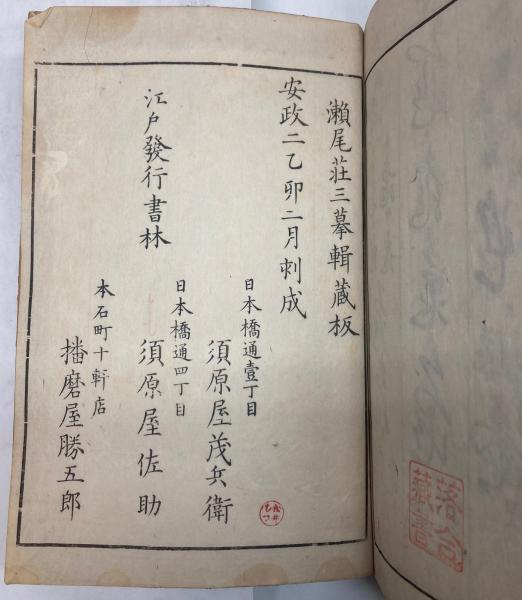 瀨尾荘三摹輯蔵板
安政二乙卯二月刺成
江戸發行書林
日本橋通壹丁目
須原屋茂兵衛
日本橋通四丁目
須原屋佐助
本石町十軒店
播磨屋勝五郎
落合
藏書